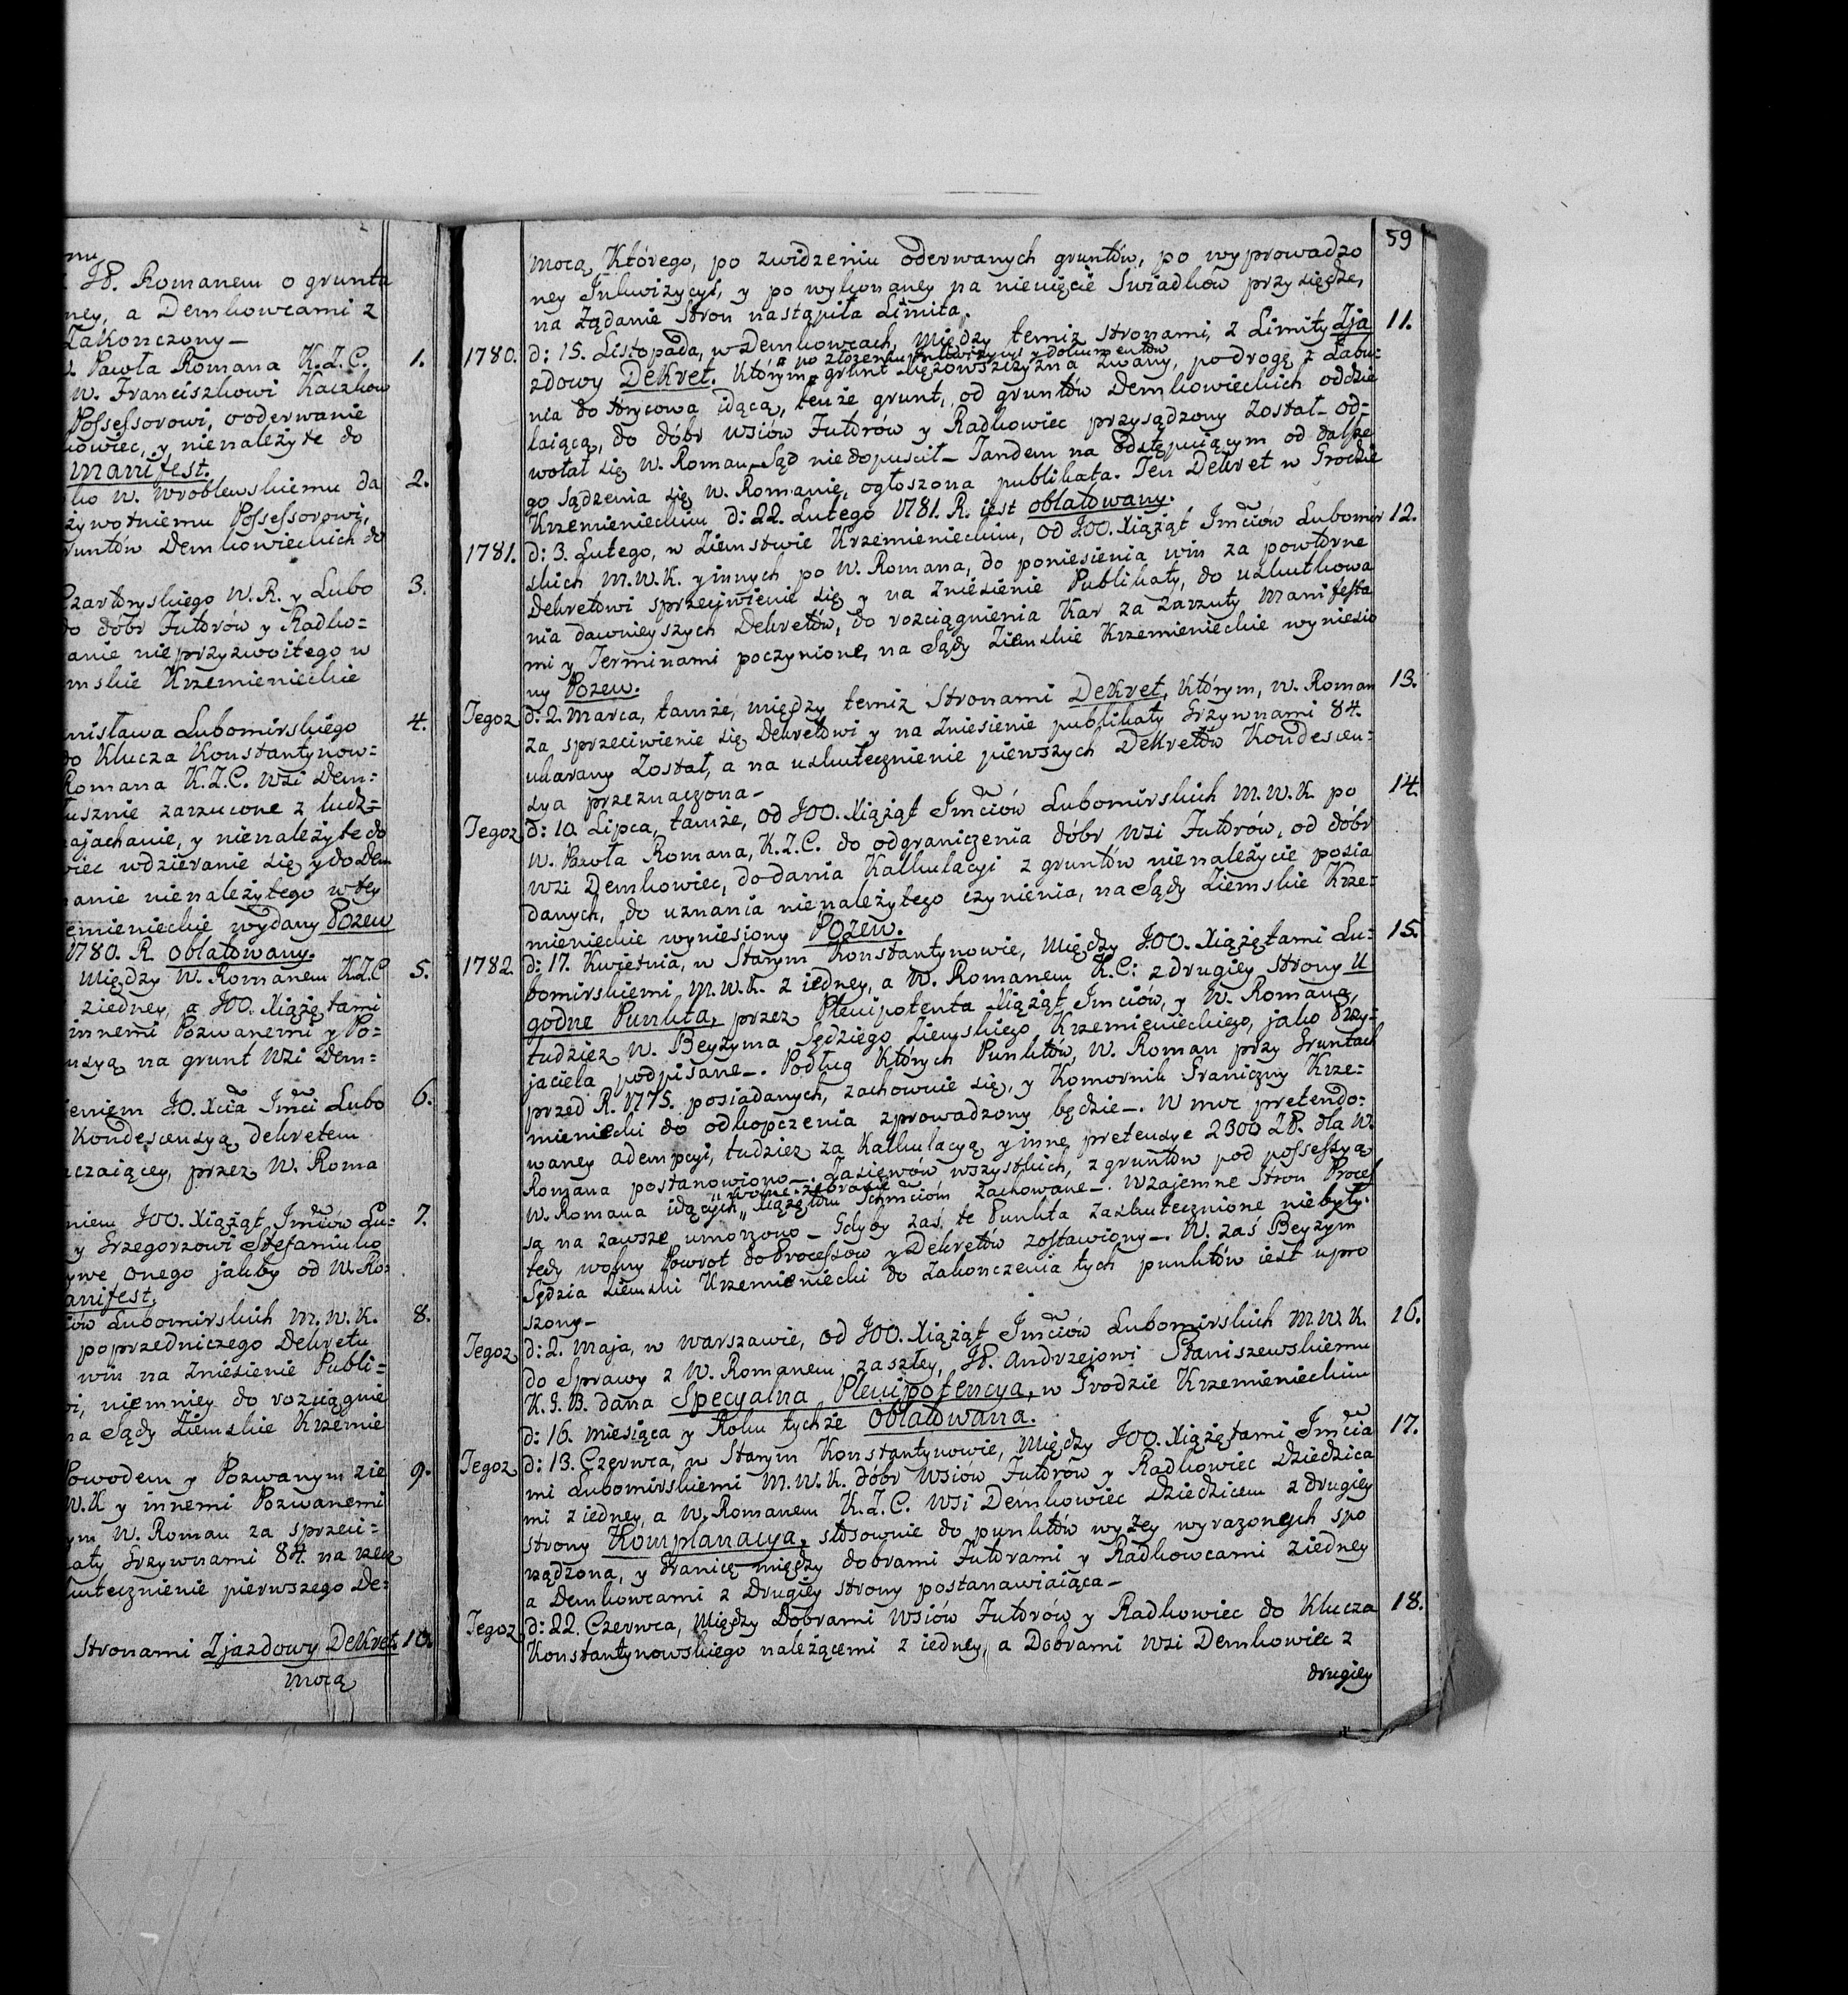 mu
JP. Romanem o grunta
ney, a Demkowcami z
Zakonczony_
W. Pawła Romana K.Z.C. 1.
W. Franciszkowi Kaczkow
Possessorowi, o oderwanie
kowiec, y nienależyte do
manifest.
ko W. Wroblewskiemu da 2.
żywotniemu Possessorowi,
gruntów Demkowieckich do
Czartoryskiego W.R. y Lubo 3.
do dóbr Futorów y Radko=
anie nieprzyzwoitego w
mskie Krzemienieckie
nisława Lubomirskiego 4.
do Klucza Konstantynow=
Romana K.Z.C. wsi Dem=
łusznie zarzucone z ludz=
najachanie, y nienależyte do
wiec wdzieranie się y do Dem
nanie nienależytego w tey
emienieckie wydany Pozew
1780. R. oblatowany.
Między W. Romanem K.Z.C 5.
z iedney, a JOO. Xiążętami
innemi Pozwanemi y Po=
nsyą na grunt wsi Dem=
ieniem JO. Xcia Jmci Lubo 6.
Kondescensyą dekretem
czaiącey, przez W. Roma
niem JOO. Xiążąt Jmciów Lu= 7.
y Grzegorzowi Stefaniuko
ywe onego jakby od W. Ro=
anifest.
ciów Lubomirskich M.W.K. 8.
poprzedniczego Dekretu
win na zniesienie Publi=
bi, niemniey do rozciągnie
na Sądy Ziemskie Krzemie
Powodem y Pozwanym zie 9.
W.K y innemi Pozwanemi
ym W. Roman za sprzeci=
aty Grzywnami 84. na rzecz
kutecznienie pierwszego De=
Stronami Zjazdowy Dekret 10.
mocą
59
mocą Którego, po zwidzeniu oderwanych gruntów, po wyprowadzo
ney Inkwizycyi, y po wykonaney na nienięcie Swiadków przysiędze,
na żądanie Stron nastąpiła Limita.
1780. d: 15. Listopada, w Demkowcach, między temiż stronami, z Limity Zja 11.
a po złożeniu Inkwizycyi y dokumentów
zdowy Dekret. Którym grunt Mężowszczyzna zwany, po drogę z Łabu=
nia do Hrycowa idącą, tenże grunt, od gruntów Demkowieckich oddzie
laiącą, do dóbr wsiów Futorów y Radkowiec przysądzony został_ od=
wołał się W. Roman_ Sąd niedopuscił_ Tandem na odstępuiącym od dalsze
go sądzenia się W. Romanie, ogłoszona publikata. Ten Dekret w Grodzie
Krzemienieckim d: 22. Lutego 1781. R. iest oblatowany.
1781. d: 3. Lutego, w Ziemstwie Krzemienieckim, od JOO. Xiążąt Jmciów Lubomir 12.
skich M.W.K. y innych po W. Romana, do poniesienia win za powtórne
Dekretowi sprzeciwienie się y na zniesienie Publikaty, do uskutkowa
nia dawnieyszych Dekretów, do rozciągnienia Kar za zarzuty Manifesta
mi y Terminami poczynione, na Sądy Ziemskie Krzemienieckie wyniesio
ny Pozew.
Tegoż d: 2. Marca, tamże, między temiż Stronami Dekret, Którym, W. Roman 13.
za sprzeciwienie się Dekretowi y na zniesienie publikaty Grzywnami 84.
ukarany został, a na uskutecznienie pierwszych Dekretów Kondescen=
sya przeznaczona_
Tegoż d: 10. Lipca, tamże, od JOO. Xiążąt Jmciów Lubomirskich M.W.K. po 14.
W. Pawła Romana, K.Z.C. do odgraniczenia dóbr wsi Futorów, od dóbr
wsi Demkowiec, do dania Kalkulacyi z gruntów nienależycie posia
danych, do uznania nienależytego czynienia, na Sądy Ziemskie Krze=
mienieckie wyniesiony Pozew.
1782. d: 17. Kwietnia, w Starym Konstantynowie, między JOO. Xiążętami Lu= 15.
bomirskiemi M.W.K. z iedney, a W. Romanem K.C: z drugiey strony U
godne Punkta, przez Plenipotenta Xiążąt Jmciów, y W. Romana,
tudziez W. Beyzyma Sędziego Ziemskiego Krzemienieckiego, jako Przy=
jaciela podpisane_. Podług Których Punktów, W. Roman przy Gruntach
przed R. 1775. posiadanych, zachowuie się, y Komornik Graniczny Krze=
mieniecki do odkopczenia zprowadzony będzie_. W moc pretendo=
waney adempcyi, tudziez za Kalkulacyą y inne pretensye 2300 ZP. dla W.
Romana postanowiono_. Zasiewów wszystkich, z gruntów pod possessyą
wolne zebranie
W. Romana idących, Xiążętom Jchmciom zachowane_. Wzajemne Stron Proces
sa na zawsze umorzono_ Gdyby zaś te Punkta zaskutecznione niebyły.
tedy wolny Powrot do Processow y Dekretów zostawiony_. W. zaś Beyzym
Sędzia Ziemski Krzemieniecki do Zakonczenia tych punktów iest upro
szony_
Tegoż d: 2. Maja, w Warszawie, od JOO. Xiążąt Jmciów Lubomirskich M.W.K. 16.
do Sprawy z W. Romanem zaszłey, JP. Andrzejowi Staniszewskiemu
K.G.B. dana Specyalna Plenipotencya, w Grodzie Krzemienieckim
d: 16. miesiąca y Roku tychże oblatowana.
Tegoż d: 13. Czerwca, w Starym Konstantynowie, Między JOO. Xiążętami Jmcia 17.
mi Lubomirskiemi M.W.K. dóbr wsiów Futorów y Radkowiec Dziedzica
mi z iedney, a W. Romanem K.Z.C. wsi Demkowiec Dziedzicem z drugiey
strony Komplanacya, stosownie do punktów wyżey wyrazonych spo
rządzona, y Granicę między dobrami Futorami y Radkowcami z iedney
a Demkowcami z Drugiey strony postanawiaiąca_
Tegoż d: 22. Czerwca, Między Dobrami wsiów Futorów y Radkowiec do Klucza 18.
Konstantynowskiego należącemi z iedney, a Dobrami wsi Demkowiec z
drugiey